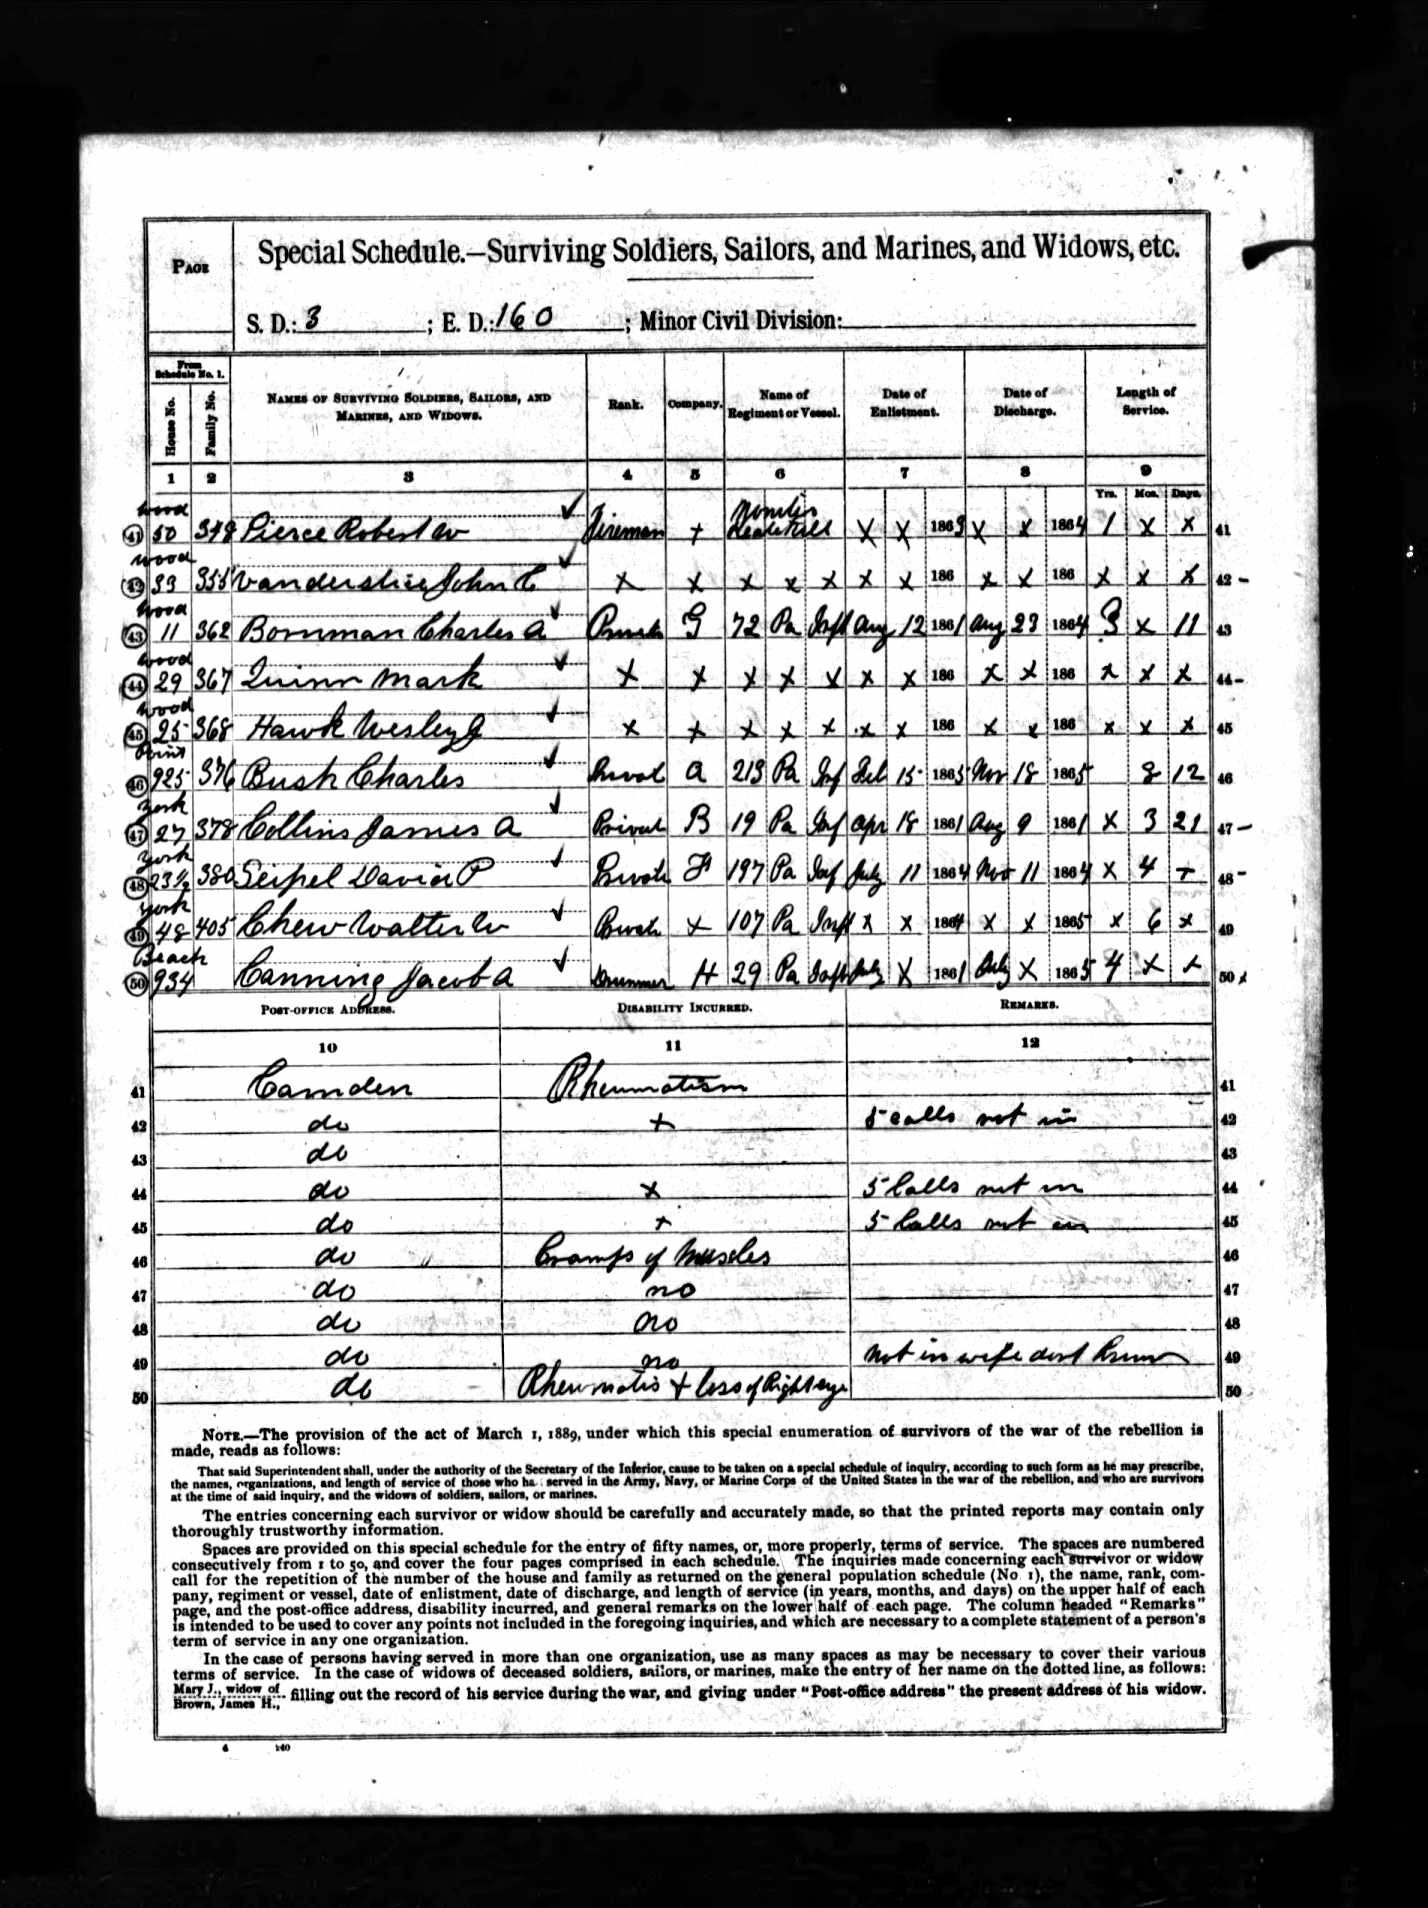 PAGE
Special Schedule.—Surviving Soldiers, Sailors, and Marines, and Widows, etc.
S. D.: 3 ; E. D.: 160 ; Minor Civil Division:
From Schedule No. 1.
House No. Family No. NAMES OF SURVIVING SOLDIERS, SAILORS, AND MARINES, AND WIDOWS. Rank. Company. Name of Regiment or Vessel. Date of Enlistment. Date of Discharge. Length of Service.
1 2 3 4 5 6 7 8 9
Yrs. Mos. Days.
Wood
41 50 348 Pierce Robert W Fireman + X X 1863 X X 1864 1 X X 41
Wood
42 33 355 Vanderslice John C X X X X X X X 186 X X 186 X X X 42
Wood
43 11 362 Bornman Charles A Private G 72 Pa Inft Aug 12 1861 Aug 23 1864 3 X 11 43
Wood
44 29 367 Quinn Mark X X X X X X X 186 X X 186 X X X 44
Wood
45 25 368 Hawk Wesley J X X X X X X X 186 X X 186 X X X 45
Point
46 925 376 Bush Charles Privat A 213 Pa Inf Feb 15 1865 Nov 18 1865 8 12 46
York
47 27 378 Collins James A Privat B 19 Pa Inf Apr 18 1861 Aug 9 1861 X 3 21 47
York
48 23½ 380 Seipel David P Private F 197 Pa Inf July 11 1864 Nov 11 1864 X 4 + 48
York
49 48 405 Chew Walter W Private X 107 Pa Inft X X 1864 X X 1865 X 6 X 49
Beach
50 934 Canning Jacob A Drummer H 29 Pa Inft July X 1861 July X 1865 4 X X 50
POST-OFFICE ADDRESS. DISABILITY INCURRED. REMARKS.
10 11 12
41 Camden Rheumatism 41
42 do + 5 calls not in 42
43 do 43
44 do X 5 Calls not in 44
45 do + 5 Calls not in 45
46 do " Cramps of Muscles 46
47 do no 47
48 do no 48
49 do no Not in wife dont Know 49
50 do Rheumatis + loss of Right eye 50
NOTE.—The provision of the act of March 1, 1889, under which this special enumeration of survivors of the war of the rebellion is
made, reads as follows:
That said Superintendent shall, under the authority of the Secretary of the Interior, cause to be taken on a special schedule of inquiry, according to such form as he may prescribe,
the names, organizations, and length of service of those who ha served in the Army, Navy, or Marine Corps of the United States in the war of the rebellion, and who are survivors
at the time of said inquiry, and the widows of soldiers, sailors, or marines.
The entries concerning each survivor or widow should be carefully and accurately made, so that the printed reports may contain only
thoroughly trustworthy information.
Spaces are provided on this special schedule for the entry of fifty names, or, more properly, terms of service. The spaces are numbered
consecutively from 1 to 50, and cover the four pages comprised in each schedule. The inquiries made concerning each survivor or widow
call for the repetition of the number of the house and family as returned on the general population schedule (No. 1), the name, rank, com-
pany, regiment or vessel, date of enlistment, date of discharge, and length of service (in years, months, and days) on the upper half of each
page, and the post-office address, disability incurred, and general remarks on the lower half of each page. The column headed "Remarks"
is intended to be used to cover any points not included in the foregoing inquiries, and which are necessary to a complete statement of a person's
term of service in any one organization.
In the case of persons having served in more than one organization, use as many spaces as may be necessary to cover their various
terms of service. In the case of widows of deceased soldiers, sailors, or marines, make the entry of her name on the dotted line, as follows:
Mary J., widow of
Brown, James H., filling out the record of his service during the war, and giving under "Post-office address" the present address of his widow.